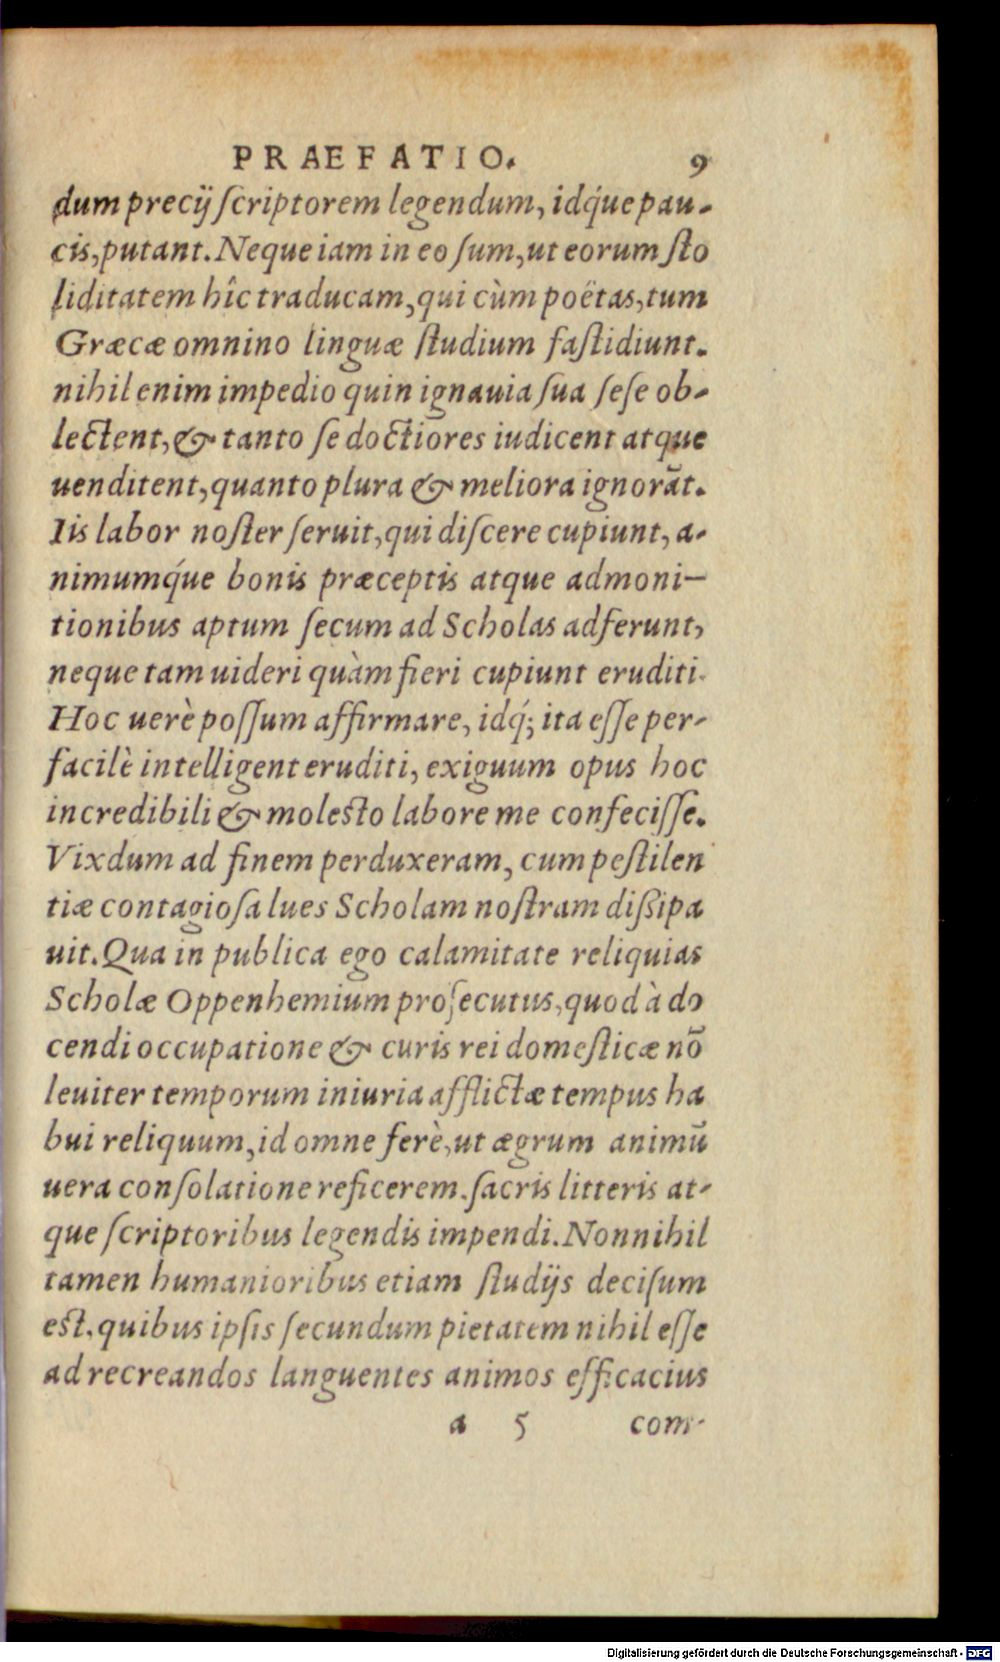 PRAEFATIO. 9
dum precij ſcriptorem legendum, idq́ue pau-
cis, putant. Neque iam in eo ſum, ut eorum ſto
liditatem hîc traducam, qui cùm poëtas, tum
Græcæ omnino linguæ ſtudium faſtidiunt.
nihil enim impedio quin ignauia ſua ſeſe ob-
lectent, & tanto ſe doctiores iudicent atque
uenditent, quanto plura & meliora ignorāt.
Iis labor noſter ſeruit, qui diſcere cupiunt, a-
nimumq́ue bonis præceptis atque admoni-
tionibus aptum ſecum ad Scholas adferunt,
neque tam uideri quàm fieri cupiunt eruditi.
Hoc uerè poſſum affirmare, idq́; ita eſſe per-
facilè intelligent eruditi, exiguum opus hoc
incredibili & moleſto labore me confeciſſe.
Vixdum ad finem perduxeram, cum peſtilen
tiæ contagioſa lues Scholam noſtram diſsipa
uit. Qua in publica ego calamitate reliquias
Scholæ Oppenhemium proſecutus, quod à do
cendi occupatione & curis rei domeſticæ nō
leuiter temporum iniuria afflictæ tempus ha
bui reliquum, id omne ferè, ut ægrum animū
uera conſolatione reficerem. ſacris litteris at-
que ſcriptoribus legendis impendi. Nonnihil
tamen humanioribus etiam ſtudijs deciſum
eſt. quibus ipſis ſecundum pietatem nihil eſſe
ad recreandos languentes animos efficacius
a 5 com-
Digitalisierung gefördert durch die Deutsche Forschungsgemeinschaft - DFG